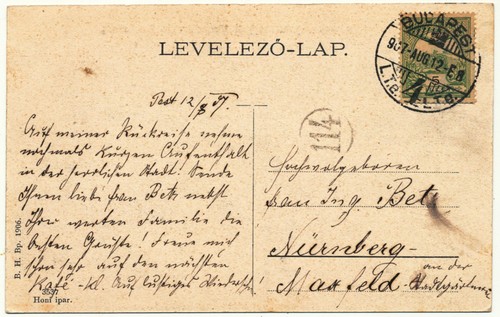 LEVELEZŐ-LAP.
BUDAPEST
907 AUG 12
Pest 12/8 07.
Auf meiner Rückreise nehme
nochmals kurzen Aufenthalt
in der herrlichen Stadt! Sende
Ihnen liebe Frau Betz nebst
Ihrer werten Familie die
besten Grüsse! Freue mich
schon sehr auf den nächsten
Kafé-Kl. Auf lustiges Wiederseh'n!
114
Hochwolgeboren
Frau Ing. Betz
Nürnberg-
Maxfeld
an der
Stadtgärtnerei
B. H. Bp. 1906.
3537
Honi ipar.